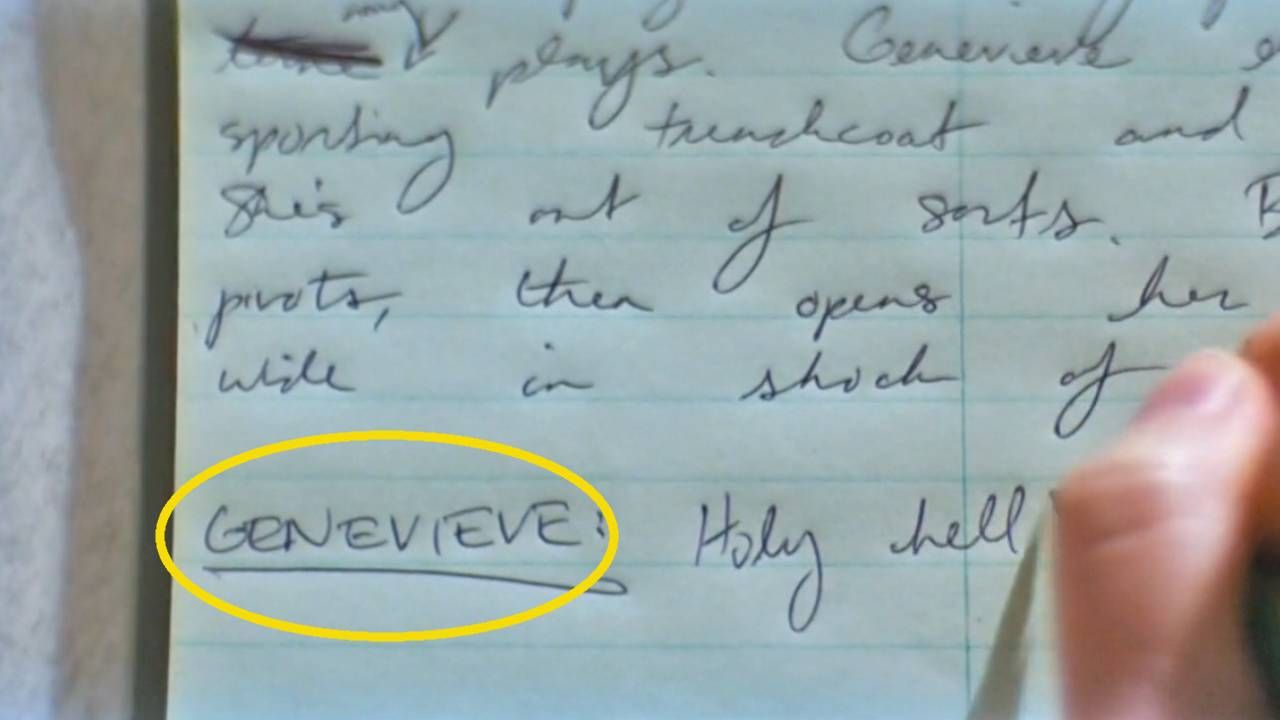 plays. Genevieve
sporting trenchcoat and
She's out of sorts.
pivots, then opens her
wide in shock of
GENEVIEVE: Holy hell